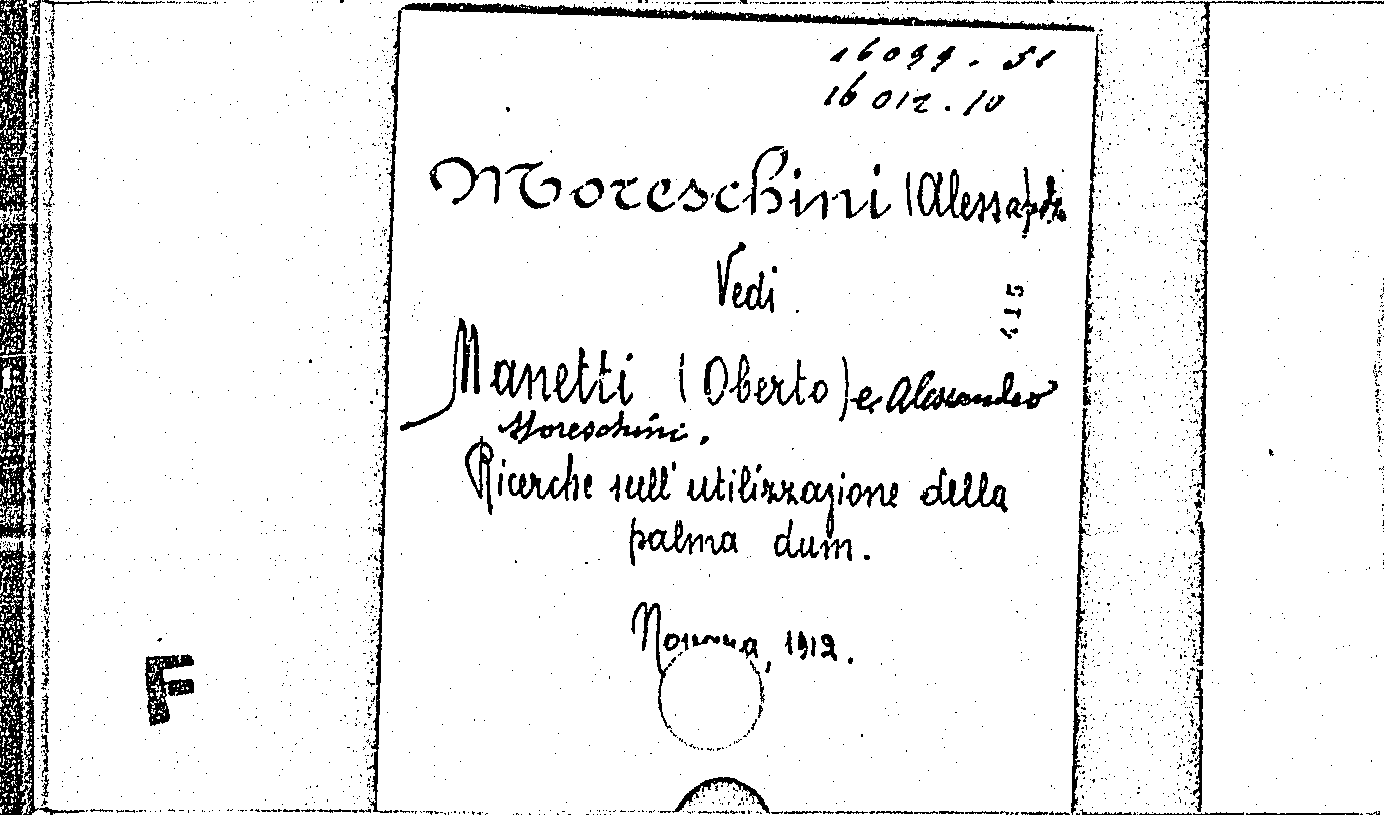 16099.51
16012.10
Moreschini (Alessandro)
Vedi
Manetti (Oberto) e Alessandro
Moreschini.
Ricerche sull'utilizzazione della
palma dum.
Novara, 1912.
F